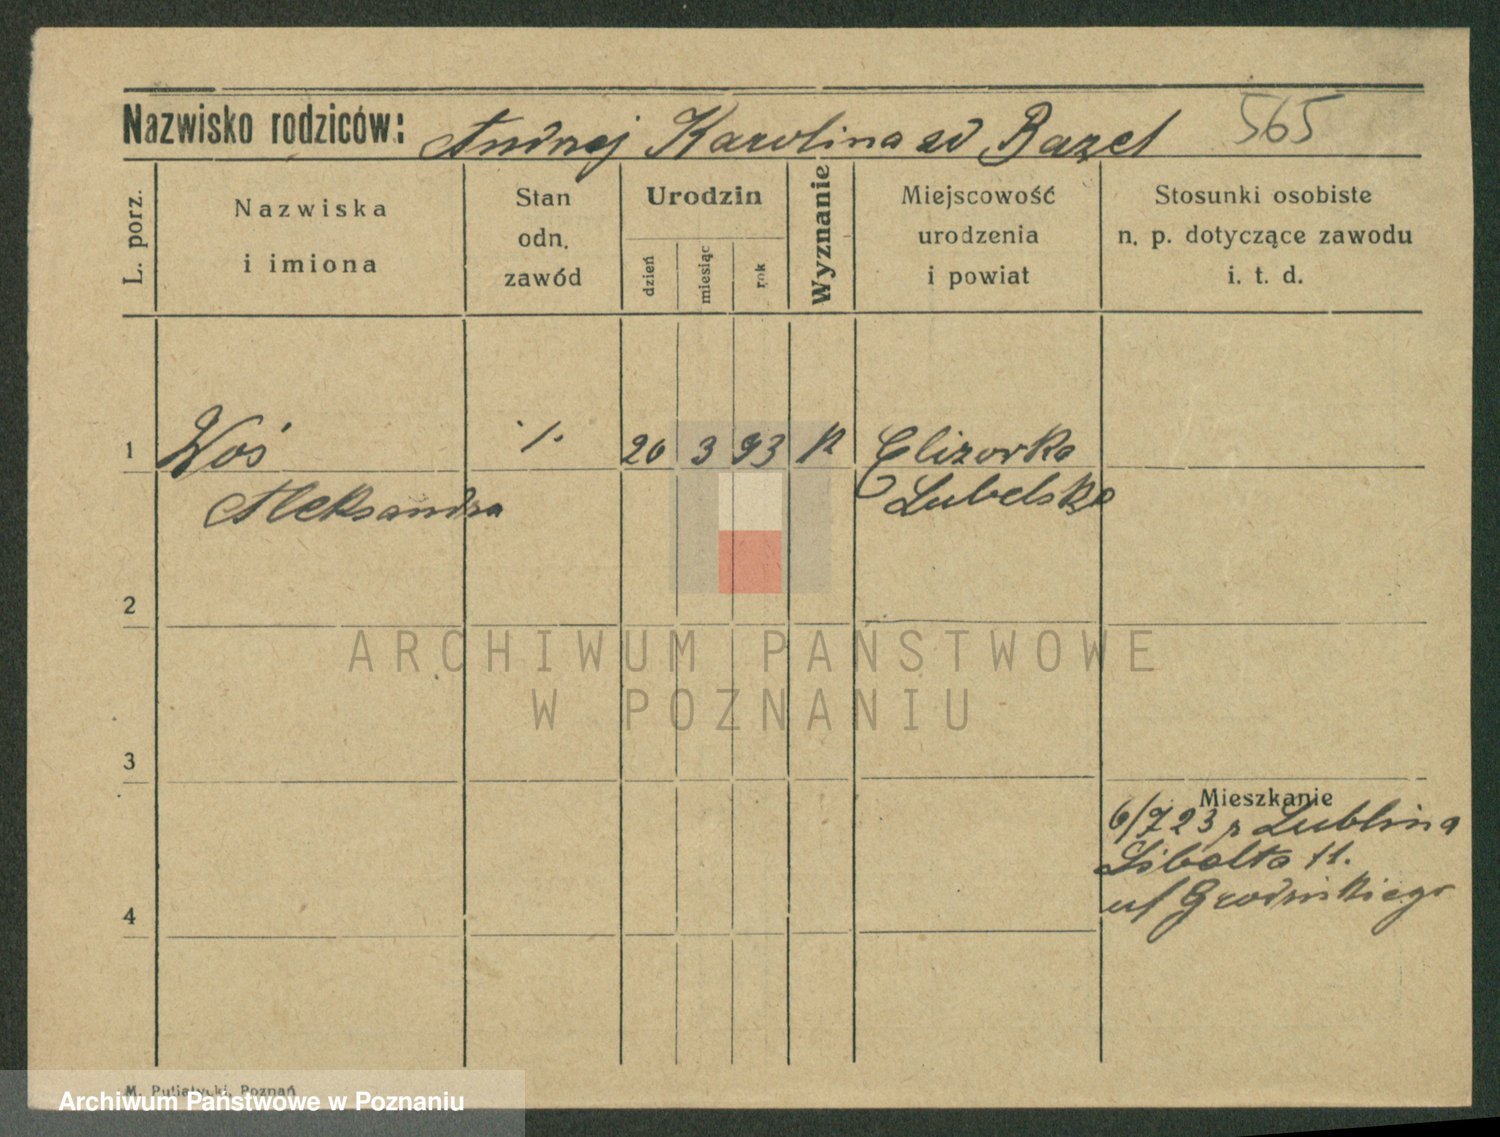 Nazwisko rodziców: Andrzej Karolina zd Bazel 565
L. porz.
Nazwiska
i imiona
Stan
odn.
zawód
Urodzin
dzień
miesiąc
rok
Wyznanie
Miejscowość
urodzenia
i powiat
Stosunki osobiste
n. p. dotyczące zawodu
i. t. d.
1 Woś ./. 20 3 93 K Elizorka
Aleksandra Lubelske
2
ARCHIWUM PAŃSTWOWE
W POZNANIU
3
Mieszkanie
6/7 23 z Lublina
Libelta 11.
4 u/ Grodzińskiego
M. Putiatycki, Poznań
Archiwum Państwowe w Poznaniu